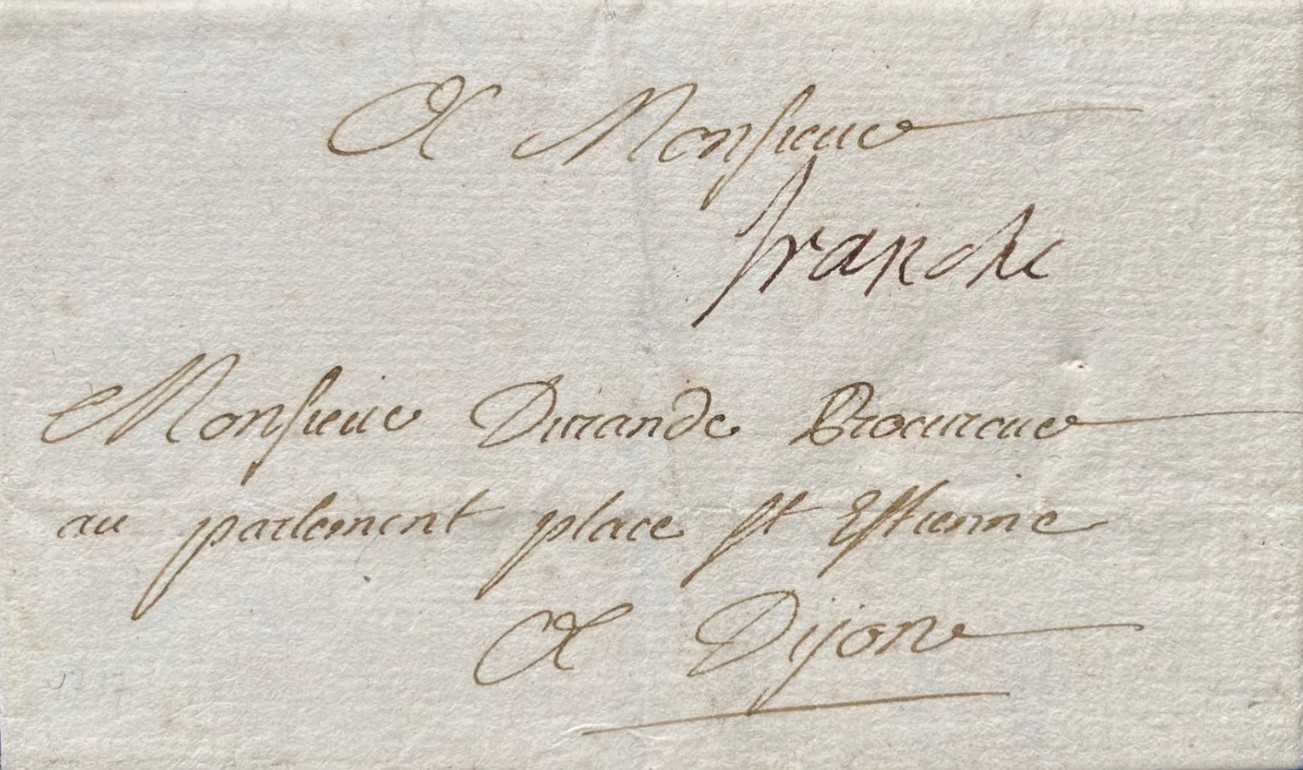 A Monsieur
franche
Monsieur Durande Procureur
au parlement place st Estienne
A Dijon